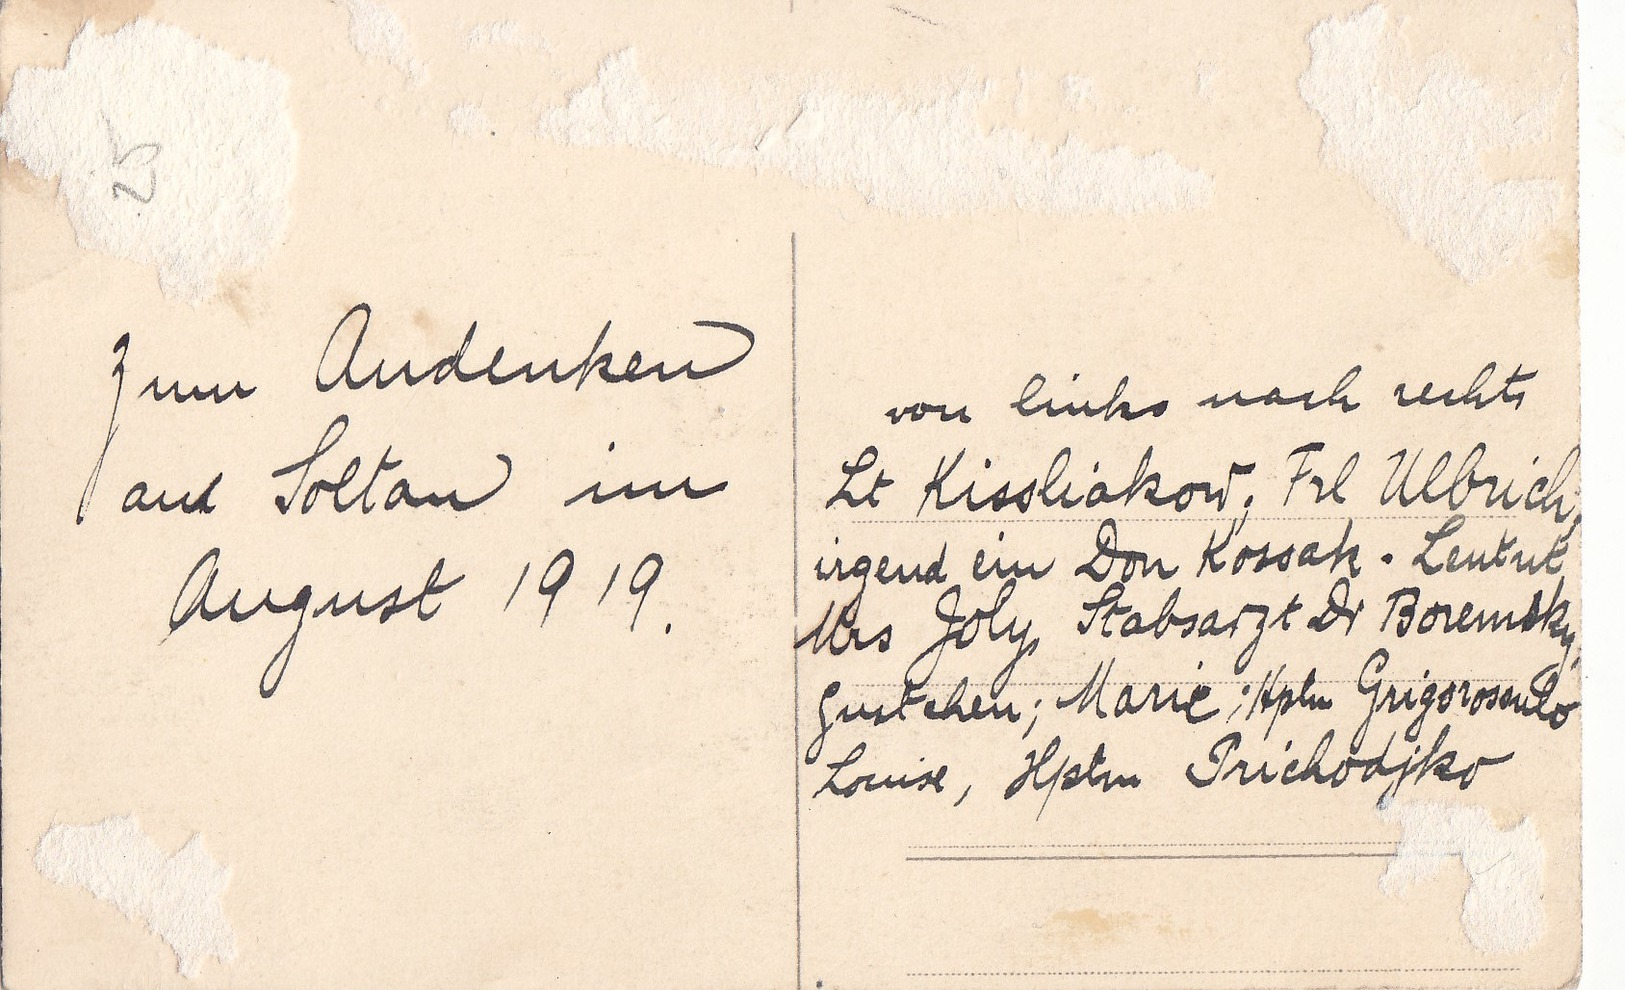 25
Zum Andenken
aus Soltau im
August 1919.
von links nach rechts
Lt Kissliakow, Frl Ulbrich,
irgend ein Don Kossak. Leutnt
Mrs Joly, Stabsarzt Dr Boremsky,
Gustchen; Marie; Hptm
Louise, Hptm Prichodjko